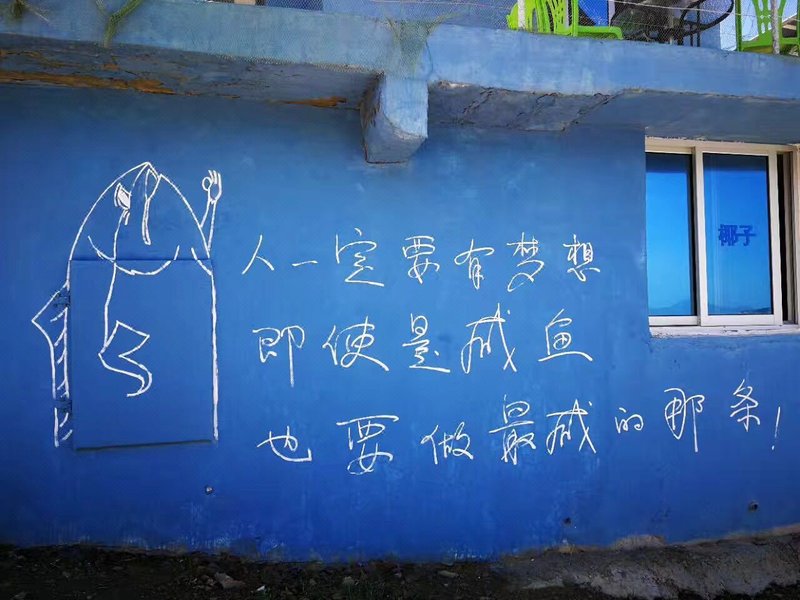 人一定要有梦想
即使是咸鱼
也要做最咸的那条!
椰子